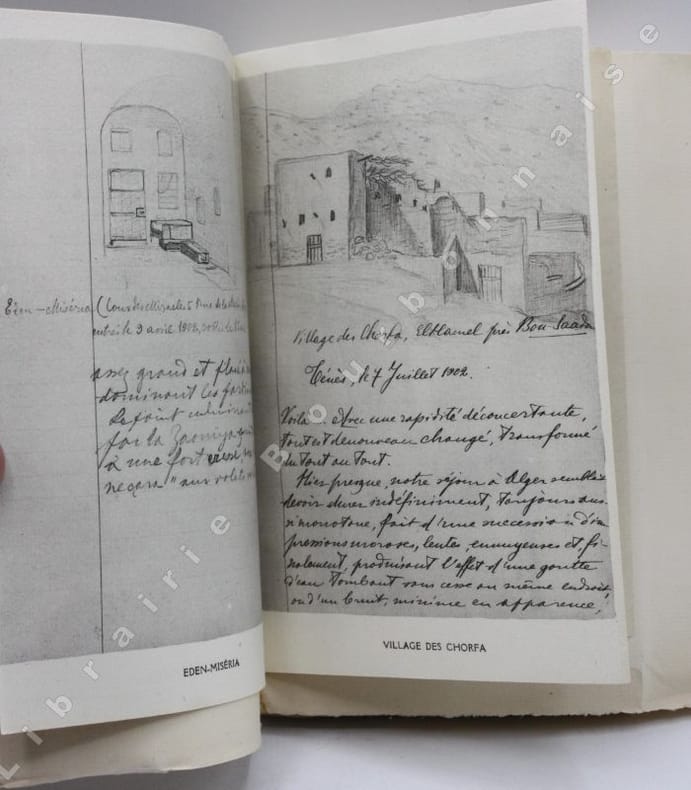 Eden-Miséria (Cour des Miracles 5 Rue de la
entrée le 3 avril 1902,
assez grand et
dominant les
Le point culminant
par la Zaouiya
à une fort
neçara" aux volets
EDEN-MISÉRIA
Village des Chorfa, ElHamel près Bou-Saada
Ténès, le 7 Juillet 1902.
Voilà... Avec une rapidité déconcertante,
tout est de nouveau changé, transformé
du tout au tout.
Hier presque, notre séjour à Alger semblait
devoir durer indéfiniment, toujours aus-
si monotone, fait d'une succession d'im
pressions moroses, lentes, ennuyeuses et, fi-
nalement, produisant l'effet d'une goutte
d'eau tombant sans cesse au même endroit,
ou d'un bruit, minime en apparence,
VILLAGE DES CHORFA
Librairie Bourbonnaise